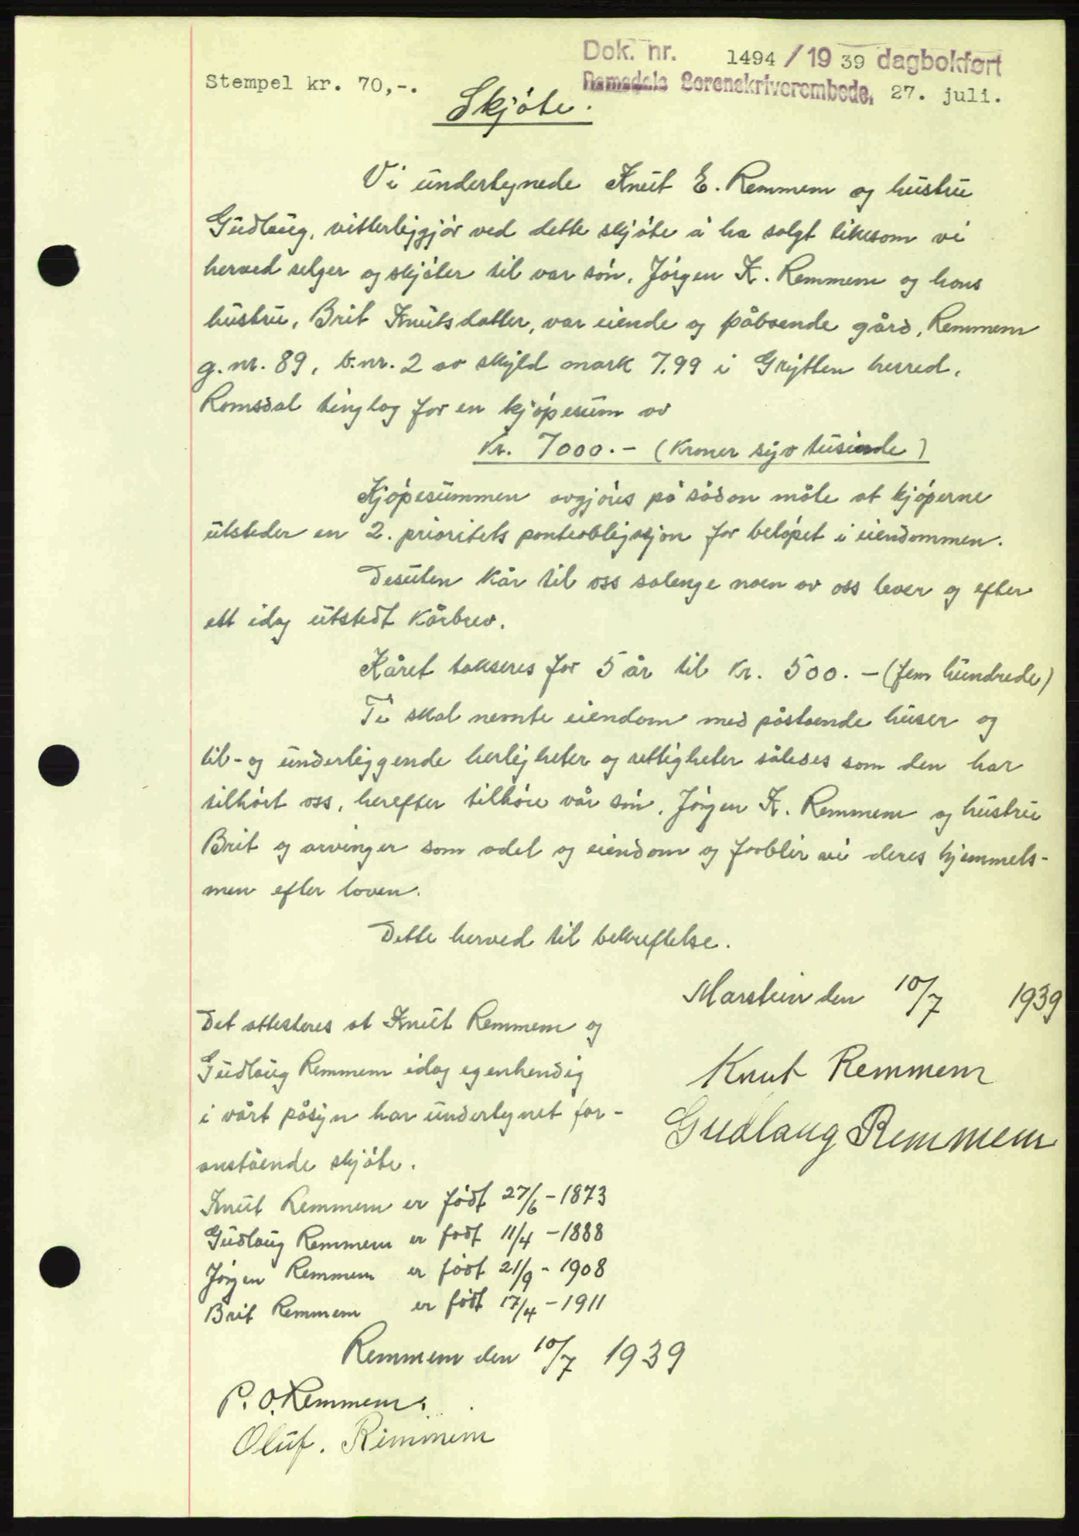 Dok. nr. 1494 / 19 39 dagbokført
Stempel kr. 70,-.
Romsdals Sorenskriverembede, 27. juli.
Skjøte.
Vi undertegnede Knut E. Remmem og hustru
Gudlaug, vitterliggjør ved dette skjøte å ha solgt likesom vi
herved selger og skjøter til var søn, Jørgen K. Remmem og hans
hustru, Brit Knutsdatter, var eiende og påboende gård, Remmem
g.nr. 89, b.nr. 2 av skyld mark 7.99 i Grytten herred,
Romsdal tinglag for en kjøpesum av
Kr. 7000.- (Kroner syv tusinde)
Kjøpesummen avgjøres på sådan måte at kjøperne
utsteder en 2. prioritets panteobligasjon for beløpet i eiendommen.
Desuten Kår til oss salenge noen av oss lever og efter
ett idag utstedt Kårbrev.
Kåret takseres for 5 år til Kr. 500.- (fem hundrede)
Ti skal nemte eiendom med påstaende huser og
til- og underliggende herligheter og rettigheter således som den har
tilhørt oss, herefter tilhøre vår søn, Jørgen K. Remmem og hustru
Brit og arvinger som odel og eiendom og forblir vi deres hjemmels-
men efter loven.
Dette herved til bekreftelse.
Marstein den 10/7 1939
Knut Remmem
Gudlaug Remmem
Det attesteres at Knut Remmem og
Gudlaug Remmem idag egenhendig
i vårt påsyn har undertegnet for-
anstående skjøte.
Knut Remmem er født 27/6 - 1873
Gudlaug Remmem er født 11/4 - 1888
Jørgen Remmem er født 21/9 - 1908
Brit Remmem er født 17/4 - 1911
Remmem den 10/7 1939
P. O. Remmem.
Oluf. Remmem